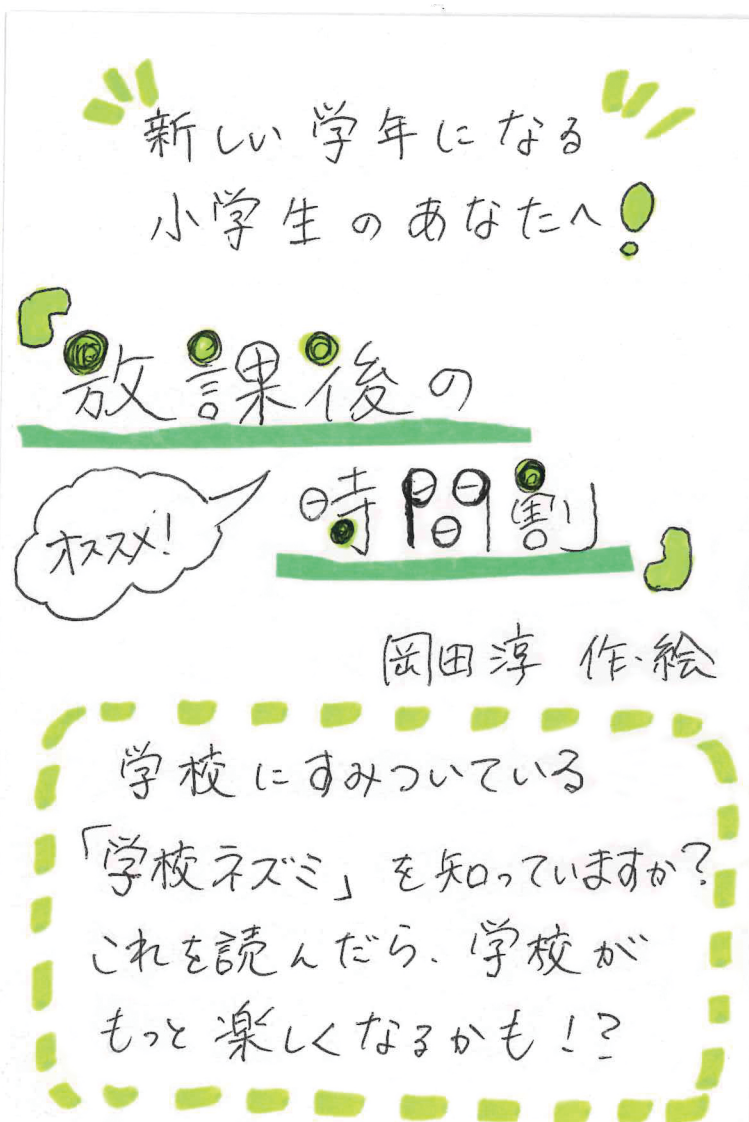 新しい学年になる
小学生のあなたへ!
『放課後の
オススメ!
時間割』
岡田淳 作・絵
学校にすみついている
「学校ネズミ」を知っていますか?
これを読んだら、学校が
もっと楽しくなるかも!?